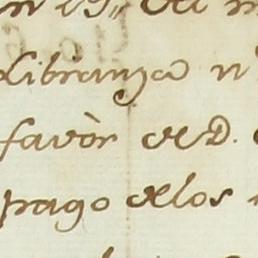 n 29,, de m
Libranza n
favòr de D.
pago de los